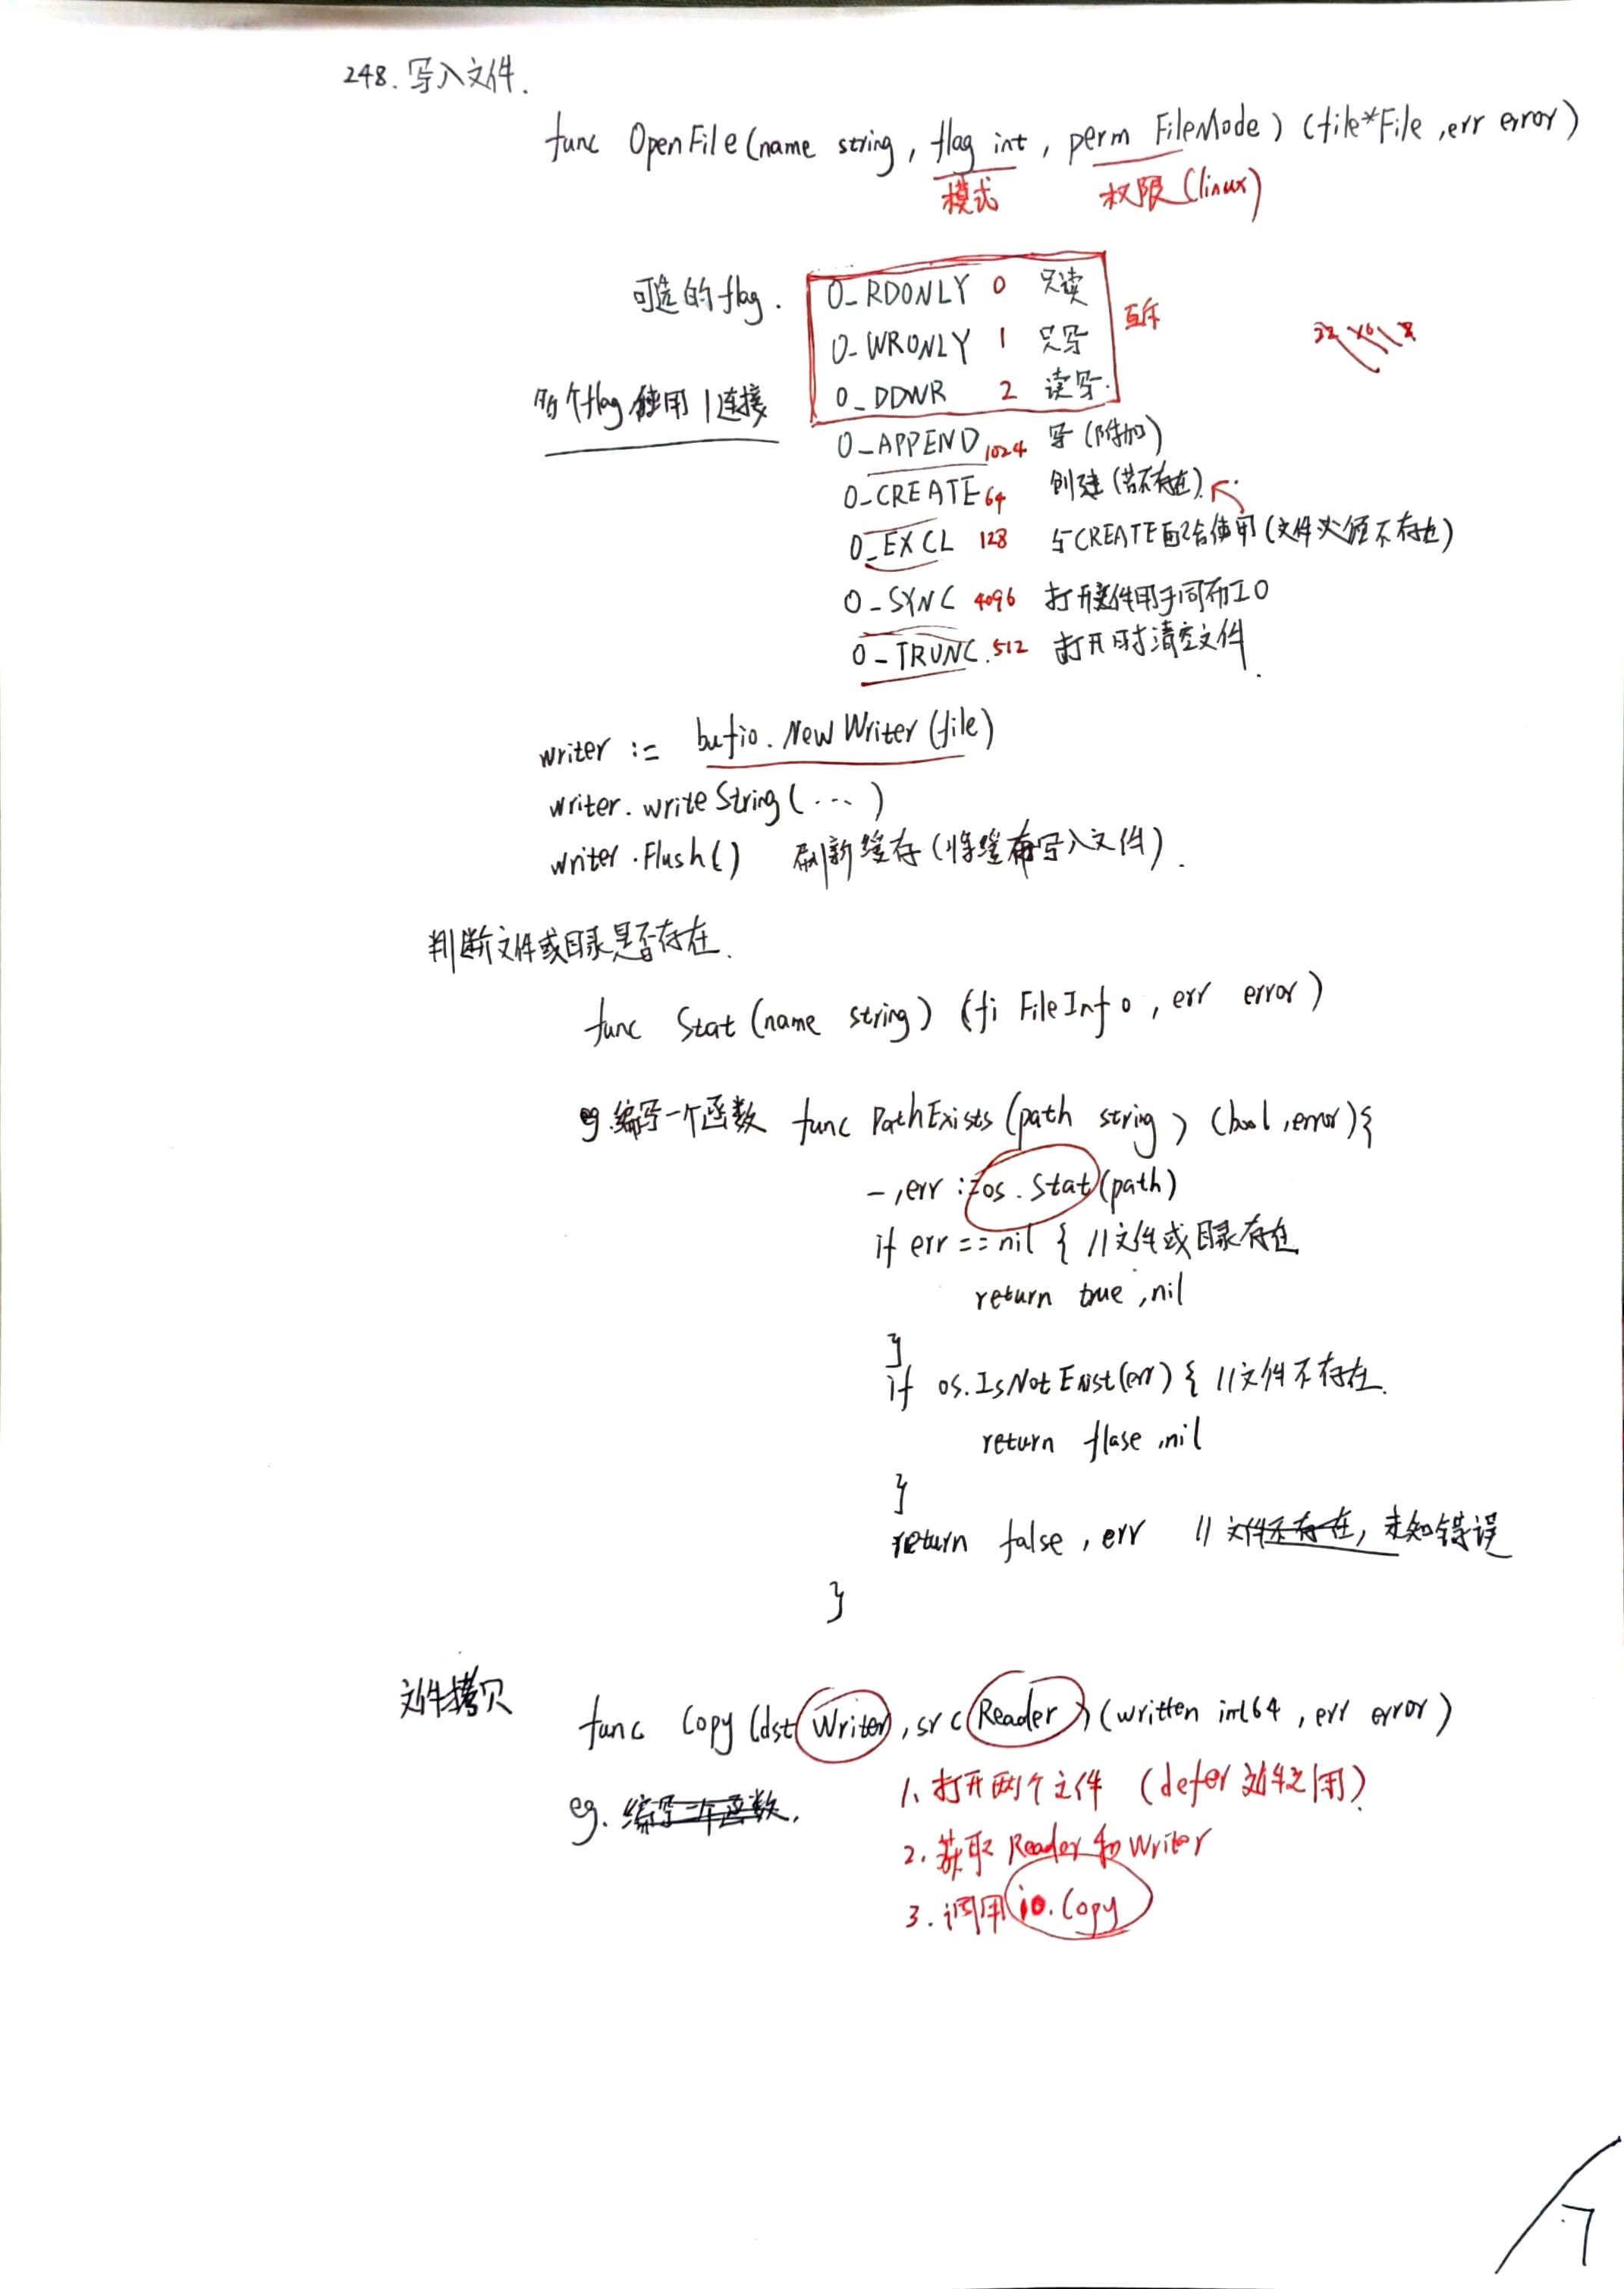 248. 写入文件.
func OpenFile(name string, flag int, perm FileMode) (file*File, err error)
模式 权限(linux)
可选的 flag.
O_RDONLY 0 只读
O_WRONLY 1 只写
互斥
多个flag使用 | 连接
O_DDWR 2 读写.
O_APPEND 1024 写(附加)
O_CREATE 64 创建(若不存在)
O_EXCL 128 与CREATE配合使用(文件必须不存在)
O_SYNC 4096 打开文件用于同布IO
O_TRUNC. 512 打开时清空文件.
writer := bufio.NewWriter(file)
writer.writeString(...)
writer.Flush() 刷新缓存(将缓存写入文件).
判断文件或目录是否存在.
func Stat(name string) (fi FileInfo, err error)
eg.编写一个函数 func PathExists(path string) (bool, error){
_,err := os.Stat(path)
if err == nil { //文件或目录存在
return true, nil
}
if os.IsNotExist(err) { //文件不存在.
return flase, nil
}
return false, err // 文件不存在, 未知错误
}
文件拷贝
func Copy (dst Writer, src Reader) (written int64, err error)
eg. 编写一个函数.
1. 打开两个文件 (defer 文件关闭)
2. 获取 Reader 和 Writer
3. 调用 io.Copy
7